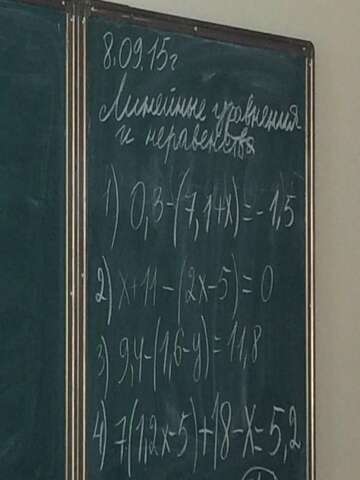 8.09.15г
Линейные уравнения
и неравенства
1) 0,3-(7,1+x)=-1,5
2) x+11-(2x-5)=0
3) 9,4-(1,6-y)=11,8
4) 7(1,2x-5)+18-x=5,2